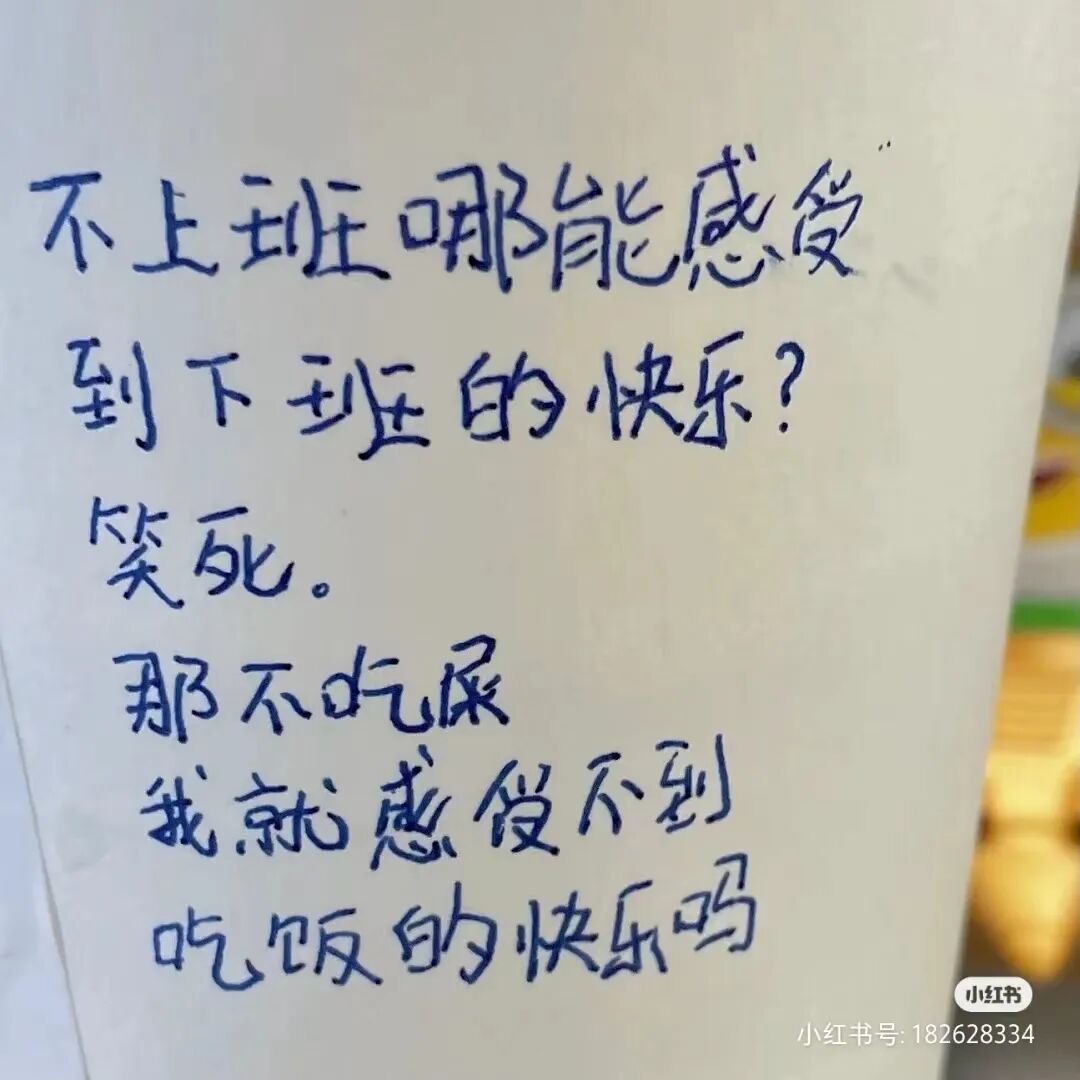 不上班哪能感受
到下班的快乐?
笑死。
那不吃屎
我就感受不到
吃饭的快乐吗
小红书
小红书号: 182628334